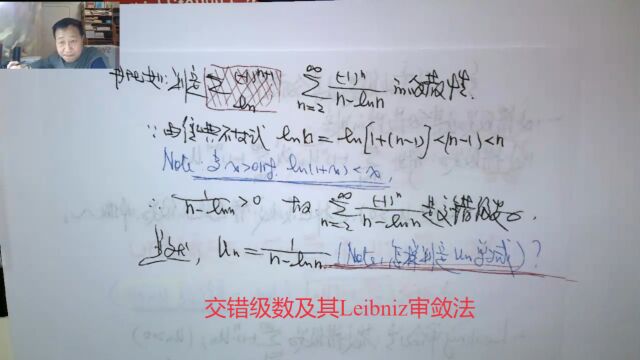 判定 $\sum_{n=2}^{\infty} \frac{(-1)^n}{n-\ln n}$ 的敛散性.
∵ 由经典不等式 $\ln n = \ln[1+(n-1)] < (n-1) < n$
Note 当 $x>0$时, $\ln(1+x)<x$.
∴ $\frac{1}{n-\ln n}>0$ 故 $\sum_{n=2}^{\infty} \frac{(-1)^n}{n-\ln n}$ 是交错级数.
显然, $u_n = \frac{1}{n-\ln n}$ (Note: 怎样判定 $u_n$ 单减)?
交错级数及其Leibniz审敛法